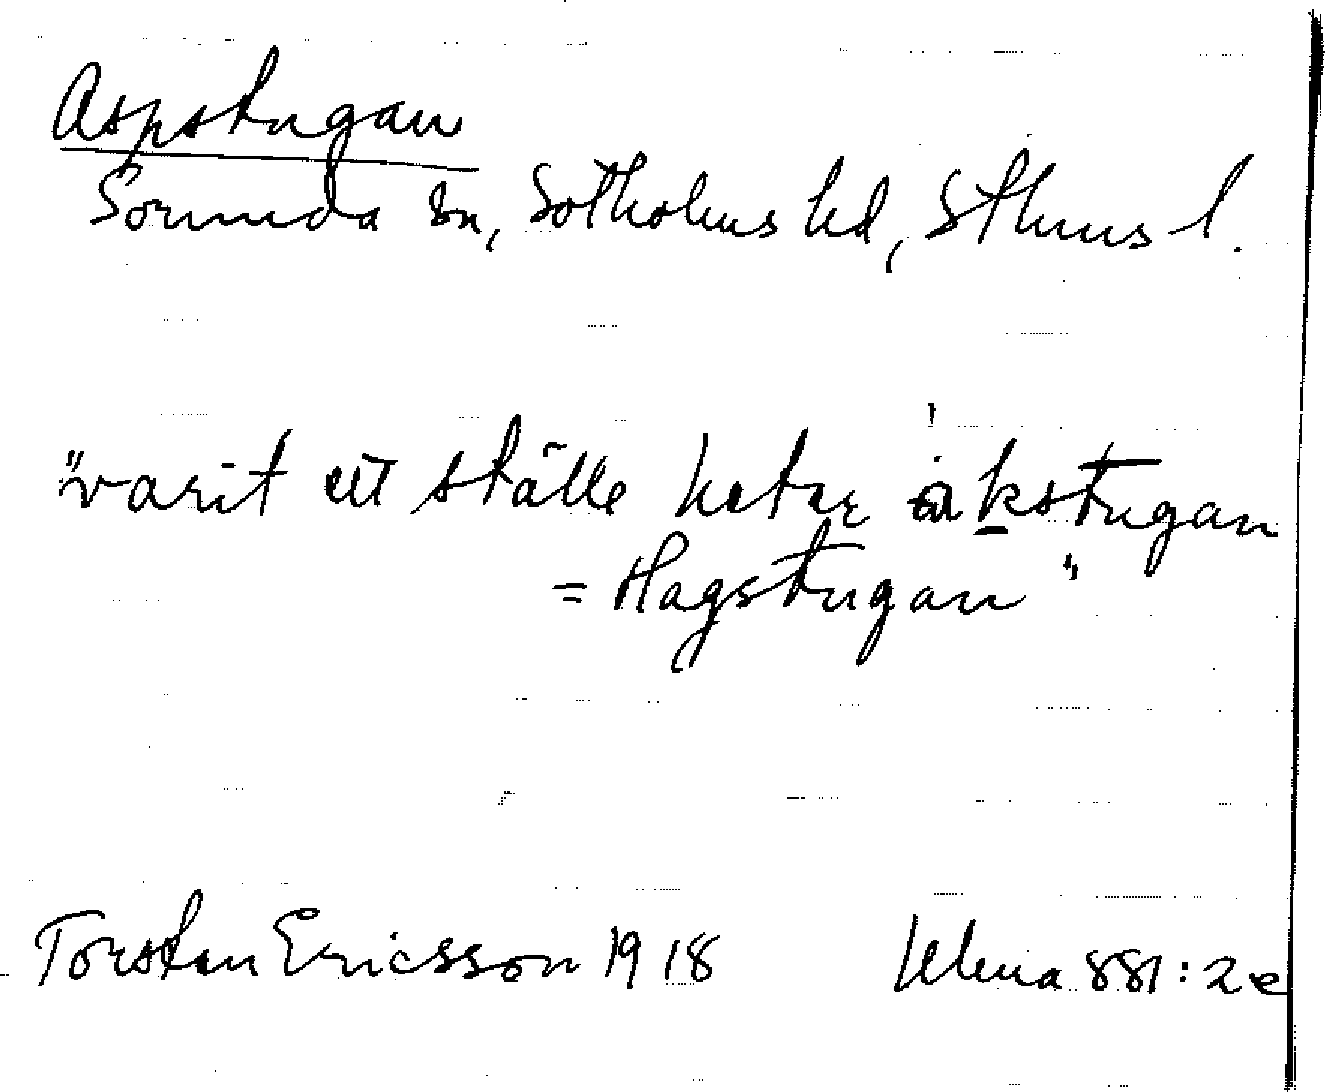 Aspstugan
Sorunda sn, Sotholms hd, Sthlms l.
"varit ett ställe heter åkstugan
= Hagstugan"
Torsten Ericsson 1918 Ulma 881:2e